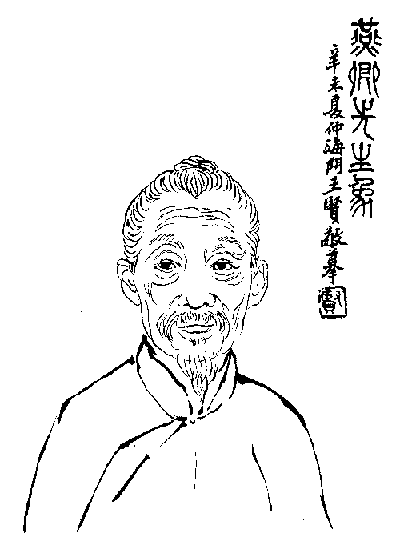 燕卿先生象
辛未夏仲海門王賢敬摹
賢